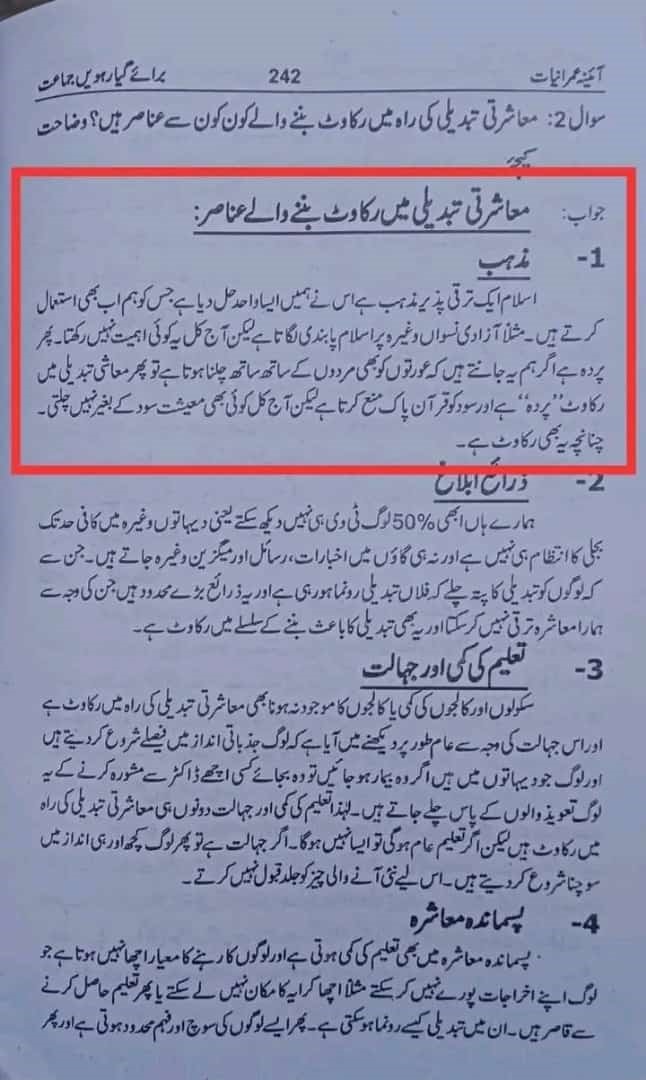 آئینہ عمرانیات 242 برائے گیارہویں جماعت
سوال 2: معاشرتی تبدیلی کی راہ میں رکاوٹ بننے والے کون کون سے عناصر ہیں؟ وضاحت
کیجئے
جواب: معاشرتی تبدیلی میں رکاوٹ بننے والے عناصر:
1- مذہب
اسلام ایک ترقی پذیر مذہب ہے اس نے ہمیں ایسا واحد حل دیا ہے جس کو ہم اب بھی استعمال
کرتے ہیں۔ مثلاً آزادی نسواں وغیرہ پر اسلام پابندی لگاتا ہے لیکن آج کل یہ کوئی اہمیت نہیں رکھتا۔ پھر
پردہ ہے اگر ہم یہ جانتے ہیں کہ عورتوں کو بھی مردوں کے ساتھ ساتھ چلنا ہوتا ہے تو پھر معاشی تبدیلی میں
رکاوٹ "پردہ" ہے اور سود کو قرآن پاک منع کرتا ہے لیکن آج کل کوئی بھی معیشت سود کے بغیر نہیں چلتی۔
چنانچہ یہ بھی رکاوٹ ہے۔
2- ذرائع ابلاغ
ہمارے ہاں ابھی 50% لوگ ٹی وی ہی نہیں دیکھ سکتے یعنی دیہاتوں وغیرہ میں کافی حد تک
بجلی کا انتظام ہی نہیں ہے اور نہ ہی گاؤں میں اخبارات، رسائل اور میگزین وغیرہ جاتے ہیں۔ جن سے
کہ لوگوں کو تبدیلی کا پتہ چلے کہ فلاں تبدیلی رونما ہو رہی ہے اور یہ ذرائع بڑے محدود ہیں جن کی وجہ سے
ہمارا معاشرہ ترقی نہیں کر سکتا اور یہ بھی تبدیلی کا باعث بننے کے سلسلے میں رکاوٹ ہے۔
3- تعلیم کی کمی اور جہالت
سکولوں اور کالجوں کی کمی یا کالجوں کا موجود نہ ہونا بھی معاشرتی تبدیلی کی راہ میں رکاوٹ ہے
اور اس جہالت کی وجہ سے عام طور پر دیکھنے میں آیا ہے کہ لوگ جذباتی انداز میں فیصلے شروع کر دیتے ہیں
اور لوگ جو دیہاتوں میں ہیں اگر وہ بیمار ہو جائیں تو وہ بجائے کسی اچھے ڈاکٹر سے مشورہ کرنے کے یہ
لوگ تعویذ والوں کے پاس چلے جاتے ہیں۔ لہٰذا تعلیم کی کمی اور جہالت دونوں ہی معاشرتی تبدیلی کی راہ
میں رکاوٹ ہیں لیکن اگر تعلیم عام ہوگی تو ایسا نہیں ہوگا۔ اگر جہالت ہے تو پھر لوگ کچھ اور ہی انداز میں
سوچنا شروع کر دیتے ہیں۔ اس لیے نئی آنے والی چیز کو جلد قبول نہیں کرتے۔
4- پسماندہ معاشرہ
پسماندہ معاشرہ میں بھی تعلیم کی کمی ہوتی ہے اور لوگوں کا رہنے کا معیار اچھا نہیں ہوتا ہے جو
لوگ اپنے اخراجات پورے نہیں کر سکتے مثلاً اچھا کرایہ کا مکان نہیں لے سکتے یا پھر تعلیم حاصل کرنے
سے قاصر ہیں۔ ان میں تبدیلی کیسے رونما ہو سکتی ہے۔ پھر ایسے لوگوں کی سوچ اور فہم محدود ہوتی ہے اور پھر